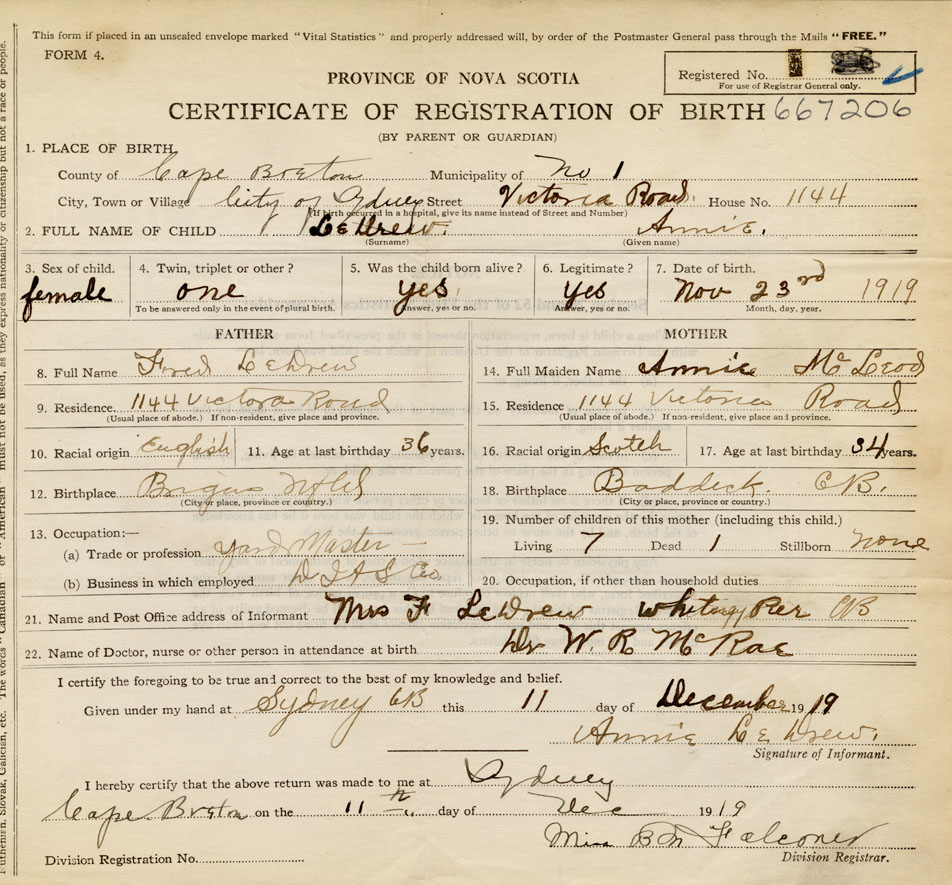 This form if placed in an unsealed envelope marked "Vital Statistics" and properly addressed will, by order of the Postmaster General pass through the Mails "FREE."
FORM 4.
Registered No.
For use of Registrar General only.
PROVINCE OF NOVA SCOTIA
CERTIFICATE OF REGISTRATION OF BIRTH 667206
(BY PARENT OR GUARDIAN)
1. PLACE OF BIRTH.
County of Cape Breton Municipality of No 1
City, Town or Village City of Sydney Street Victoria Road. House No. 1144
(If birth occurred in a hospital, give its name instead of Street and Number)
2. FULL NAME OF CHILD LeDrew. Annie.
(Surname) (Given name)
3. Sex of child. 4. Twin, triplet or other? 5. Was the child born alive? 6. Legitimate? 7. Date of birth.
female one yes. yes Nov 23rd 1919
To be answered only in the event of plural birth. Answer, yes or no. Answer, yes or no. Month, day, year.
FATHER MOTHER
8. Full Name Fred LeDrew 14. Full Maiden Name Annie McLeod
9. Residence. 1144 Victora Road 15. Residence 1144 Victoria Road
(Usual place of abode.) If non-resident, give place and province. (Usual place of abode.) If non-resident, give place and province.
10. Racial origin English 11. Age at last birthday 36 years. 16. Racial origin Scotch 17. Age at last birthday 34 years.
12. Birthplace Brigus Nfld 18. Birthplace Baddeck. C.B.
(City or place, province or country.) (City or place, province or country.)
13. Occupation:— 19. Number of children of this mother (including this child.)
(a) Trade or profession Yard Master Living 7 Dead 1 Stillborn none
(b) Business in which employed D I & S Co. 20. Occupation, if other than household duties
21. Name and Post Office address of Informant Mrs F LeDrew Whitney Pier CB
22. Name of Doctor, nurse or other person in attendance at birth Dr W. R McRae
I certify the foregoing to be true and correct to the best of my knowledge and belief.
Given under my hand at Sydney CB this 11 day of December 1919
Annie LeDrew.
Signature of Informant.
I hereby certify that the above return was made to me at Sydney
Cape Breton on the 11th day of Dec 1919
Miss B Falconer
Division Registration No. Division Registrar.
Ruthenian, Slovak, Galician, etc. The words "Canadian" or "American" must not be used, as they express nationality or citizenship but not a race or people.